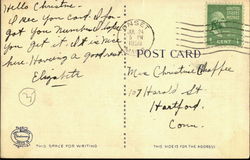 Hello Christine -
I see you card. I for
got you number. I hope
you get it. It is nice
here. Having a good rest
Elizabeth
JUL 24
5 PM
POST CARD
Miss Christine Chaffee
107 Harold St
Hartford.
Conn.
THIS SPACE FOR WRITING
THIS SIDE IS FOR THE ADDRESS